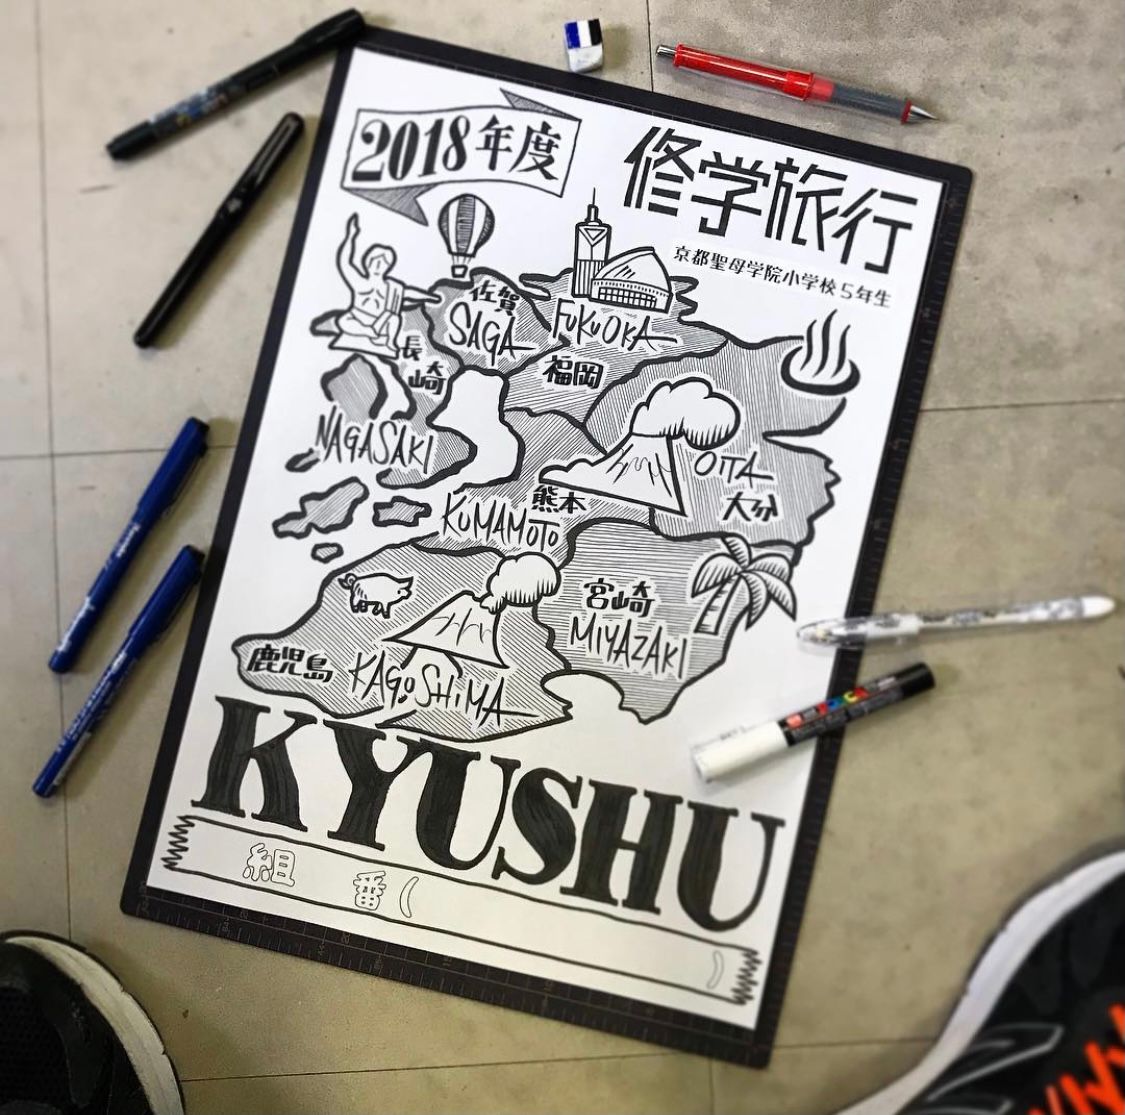 2018年度
修学旅行
京都聖母学院小学校5年生
佐賀
SAGA
FUKUOKA
福岡
長崎
NAGASAKI
OITA
大分
熊本
KUMAMOTO
宮崎
MIYAZAKI
鹿児島
KAGOSHIMA
KYUSHU
組 番( )